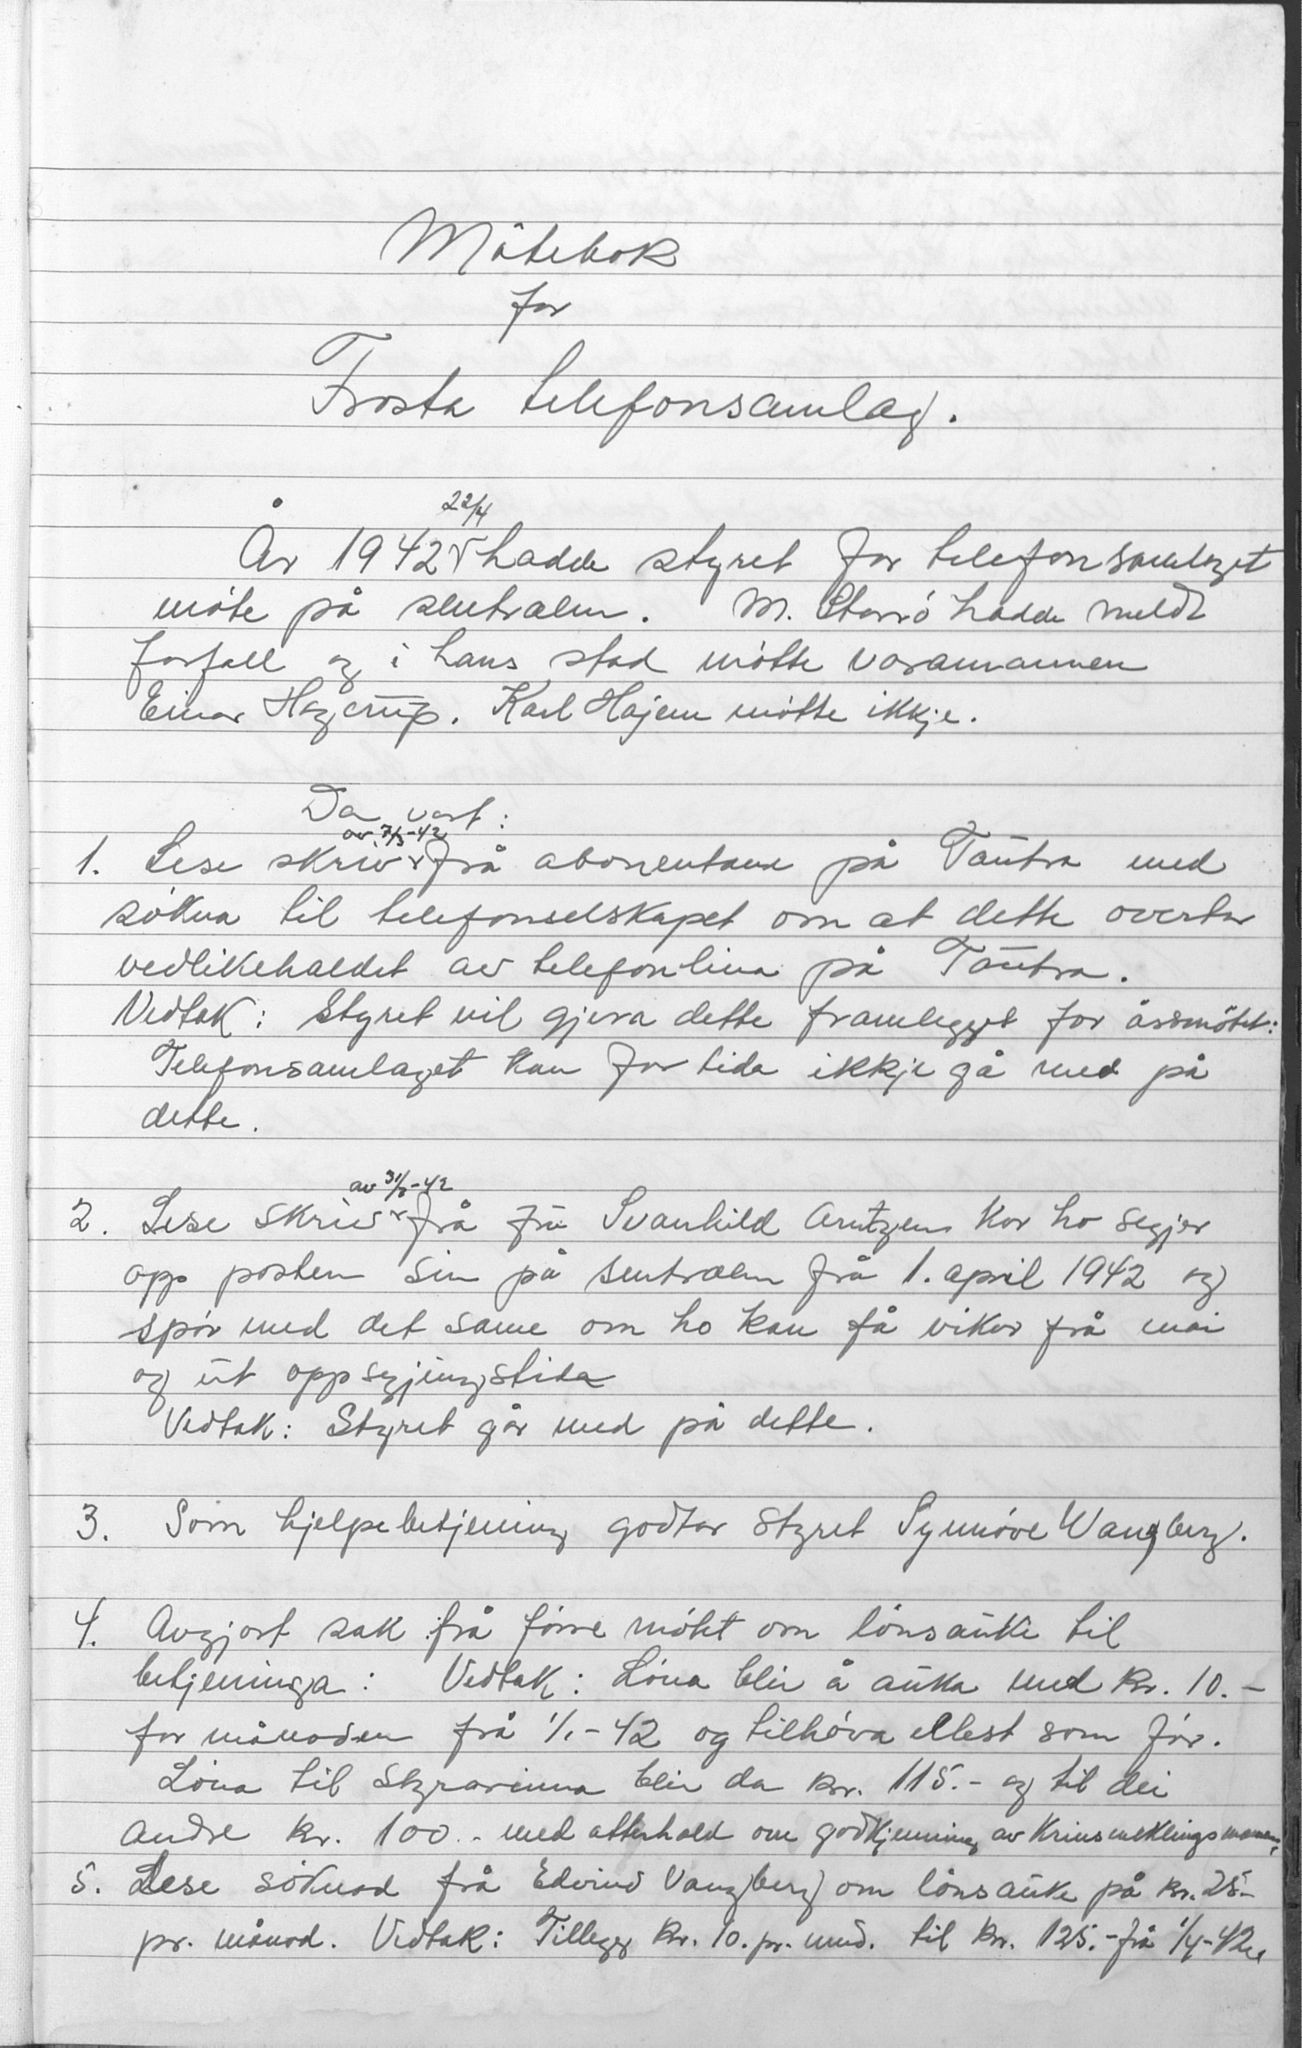 Møtebok
for
Frosta telefonsamlag.
År 1942 22/4 hadde styret for telefonsamlaget
møte på sentralen. M. Storrø hadde meldt
forfall og i hans stad møtte varamannen
Einar Hagerup. Karl Hojem møtte ikkje.
Da vart:
1. Lese skriv av 7/3-42 frå abonentane på Tautra med
søkna til telefonselskapet om at dette overtar
vedlikehaldet av telefonlina på Tautra.
Vedtak: Styret vil gjera dette framlegget for årsmøtet:
Telefonsamlaget kan for tida ikkje gå med på
dette.
2. Lese skriv av 31/3-42 frå fru Svanhild Arntzen kor ho segjer
opp posten sin på sentralen frå 1. april 1942 og
spør med det same om ho kan få vikar frå mai
og ut oppsegjingstida
Vedtak: Styret går med på dette.
3. Som hjelpebetjening godtar styret Synnøve Wangberg.
4. Avgjort sak frå førre møtet om lønsauke til
betjeninga: Vedtak: Løna blir å auka med kr. 10.-
for månaden frå 1/1-42 og tilhøva ellest som før.
Løna til styrarinna blir da kr. 115.- og til dei
andre kr. 100.- med atterhald om godkjenning av Krinsmeklingsmannen,
5. Lese søknad frå Edvind Vangberg om lønsauke på kr. 25.-
pr. månad. Vedtak: Tillegg kr. 10. pr. mnd. til kr. 125.- frå 1/4-42